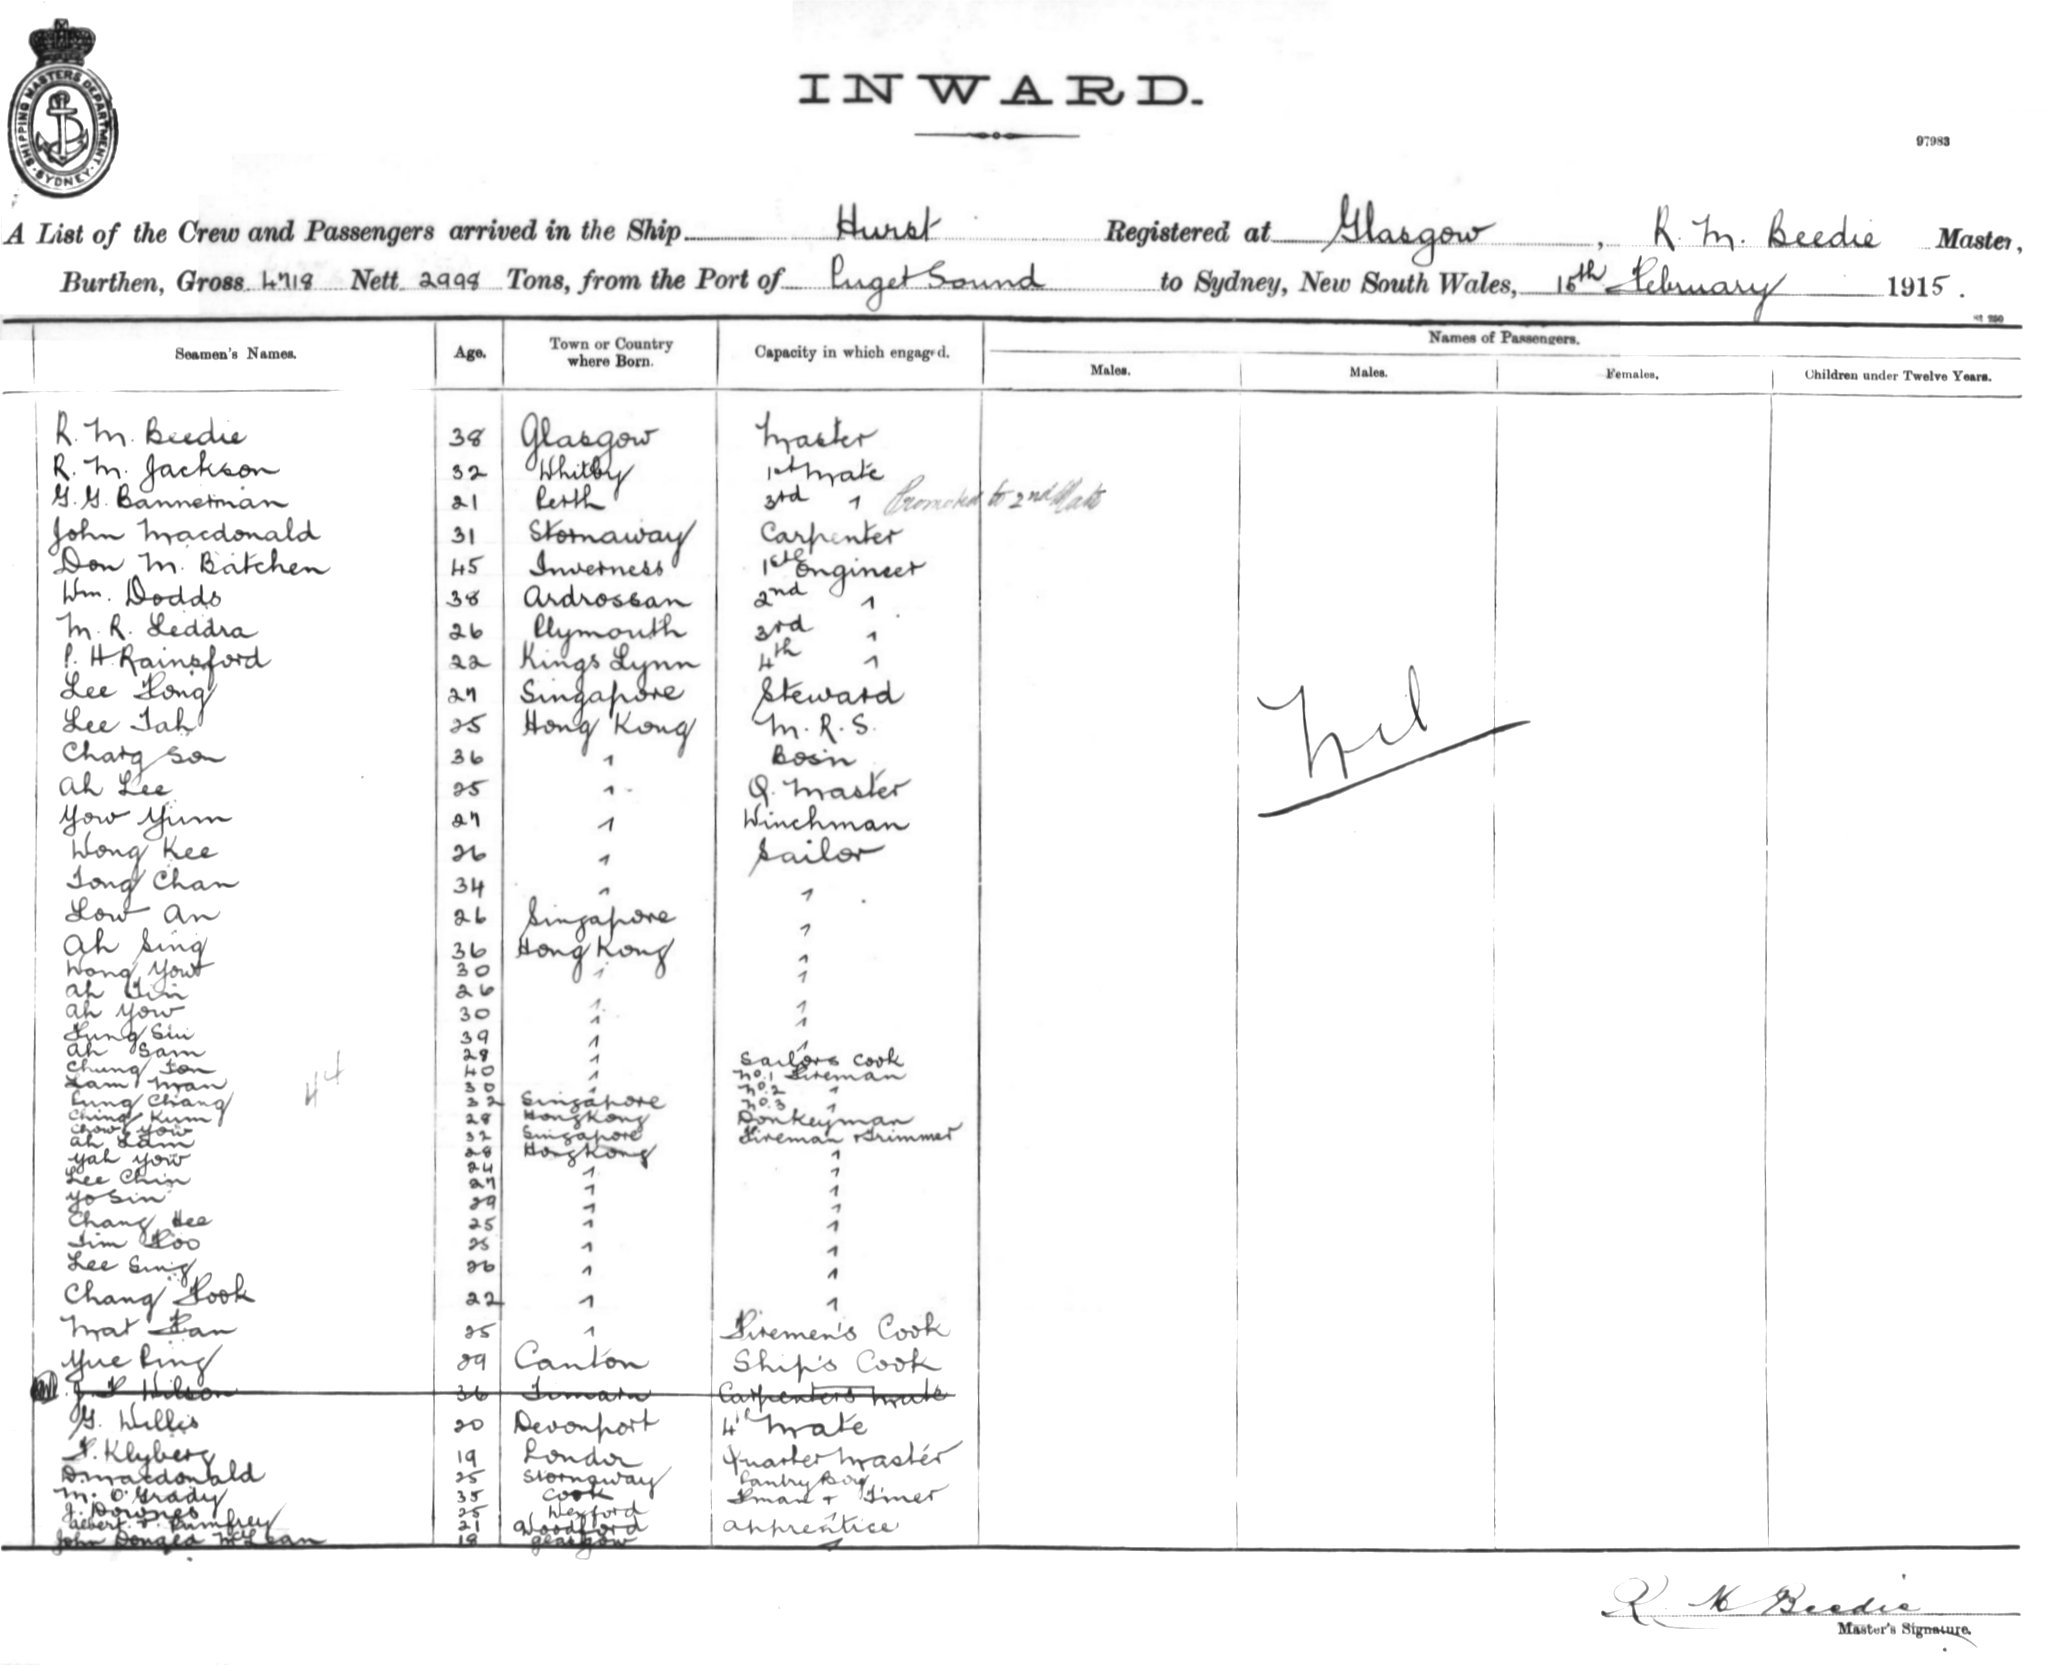 SHIPPING MASTERS DEPARTMENT
SYDNEY
INWARD.
97983
A List of the Crew and Passengers arrived in the Ship Hurst Registered at Glasgow, R. M. Beedie Master,
Burthen, Gross 4718 Nett 2998 Tons, from the Port of Puget Sound to Sydney, New South Wales, 15th February 1915.
Names of Passengers.
Seamen's Names. Age. Town or Country where Born. Capacity in which engaged. Males. Males. Females. Children under Twelve Years.
R. M. Beedie 38 Glasgow Master
R. M. Jackson 32 Whitby 1st Mate
G. G. Bannerman 21 Perth 3rd " Promoted to 2nd Mate
John Macdonald 31 Stornaway Carpenter
Don M. Batchen 45 Inverness 1st Engineer
Wm. Dodds 38 Ardrossan 2nd "
M. R. Leddra 26 Plymouth 3rd "
P. H. Rainsford 22 Kings Lynn 4th "
Lee Fong 27 Singapore Steward
Lee Tah 25 Hong Kong M. R. S.
Chang Son 36 " Bosin
Ah Lee 25 " Q. Master
Yow Yum 27 " Winchman
Wong Kee 26 " Sailor
Tong Chan 34 " "
Low An 26 Singapore "
Ah Sing 36 Hong Kong "
Wong Yowt 30 " "
Ah Tin 26 " "
Ah Yow 30 " "
Fung Sin 39 " "
Ah Sam 28 " Sailors Cook
Chung Fon 40 " No. 1 Fireman
Lam Man 30 " No. 2 "
Lung Chang 32 Singapore No. 3 "
Ching Kum 28 Hong Kong Donkeyman
Chow Yow 32 Singapore Fireman & Trimmer
Ah Lam 28 Hong Kong "
Yah Yow 24 " "
Lee Chin 27 " "
Yo Sin 29 " "
Chang Hee 25 " "
Tim Foo 25 " "
Lee Sing 26 " "
Chang Fook 22 " "
Mat Fan 25 " Firemen's Cook
Yue Ping 29 Canton Ship's Cook
J. F. Wilson 36 Timaru Carpenters Mate
G. Willis 20 Devonport 4th Mate
F. Klyberg 19 London Quarter Master
D. Macdonald 25 Stornaway Pantry Boy
M. O'Grady 35 Cook Fman & Tmer
J. Downes 25 Wexford "
Albert F. Pumfrey 21 Woodford Apprentice
John Donald McLean 18 Glasgow "
44
Nil
R M Beedie
Master's Signature.